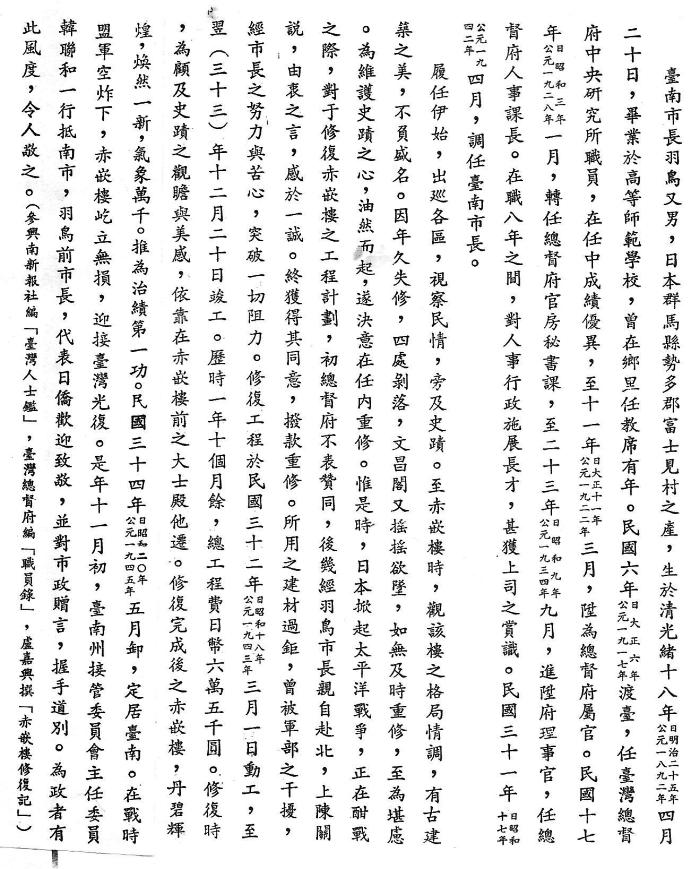 臺南市長羽鳥又男，日本群馬縣勢多郡富士見村之產，生於清光緒十八年日明治二十五年公元一八九二年四月
二十日，畢業於高等師範學校，曾在鄉里任教席有年。民國六年日大正六年公元一九一七年渡臺，任臺灣總督
府中央研究所職員，在任中成績優異，至十一年日大正十一年公元一九二二年三月，陞為總督府屬官。民國十七
年日昭和三年公元一九二八年一月，轉任總督府官房秘書課，至二十三年日昭和九年公元一九三四年九月，進陞府理事官，任總
督府人事課長。在職八年之間，對人事行政施展長才，甚獲上司之賞識。民國三十一年日昭和十七年
公元一九四二年四月，調任臺南市長。
履任伊始，出巡各區，視察民情，旁及史蹟。至赤嵌樓時，觀該樓之格局情調，有古建
築之美，不負盛名。因年久失修，四處剝落，文昌閣又搖搖欲墜，如無及時重修，至為堪慮
。為維護史蹟之心，油然而起，遂決意在任內重修。惟是時，日本掀起太平洋戰爭，正在酣戰
之際，對于修復赤嵌樓之工程計劃，初總督府不表贊同，後幾經羽鳥市長親自赴北，上陳關
說，由衷之言，感於一誠。終獲得其同意，撥款重修。所用之建材過鉅，曾被軍部之干擾，
經市長之努力與苦心，突破一切阻力。修復工程於民國三十二年日昭和十八年公元一九四三年三月一日動工，至
翌（三十三）年十二月二十日竣工。歷時一年十個月餘，總工程費日幣六萬五千圓。修復時
，為顧及史蹟之觀瞻與美感，依靠在赤嵌樓前之大士殿他遷。修復完成後之赤嵌樓，丹碧輝
煌，煥然一新，氣象萬千。推為治績第一功。民國三十四年日昭和二〇年公元一九四五年五月卸，定居臺南。在戰時
盟軍空炸下，赤嵌樓屹立無損，迎接臺灣光復。是年十一月初，臺南州接管委員會主任委員
韓聯和一行抵南市，羽鳥前市長，代表日僑歡迎致敬，並對市政贈言，握手道別。為政者有
此風度，令人敬之。（參興南新報社編「臺灣人士鑑」，臺灣總督府編「職員錄」，盧嘉興撰「赤嵌樓修復記」）